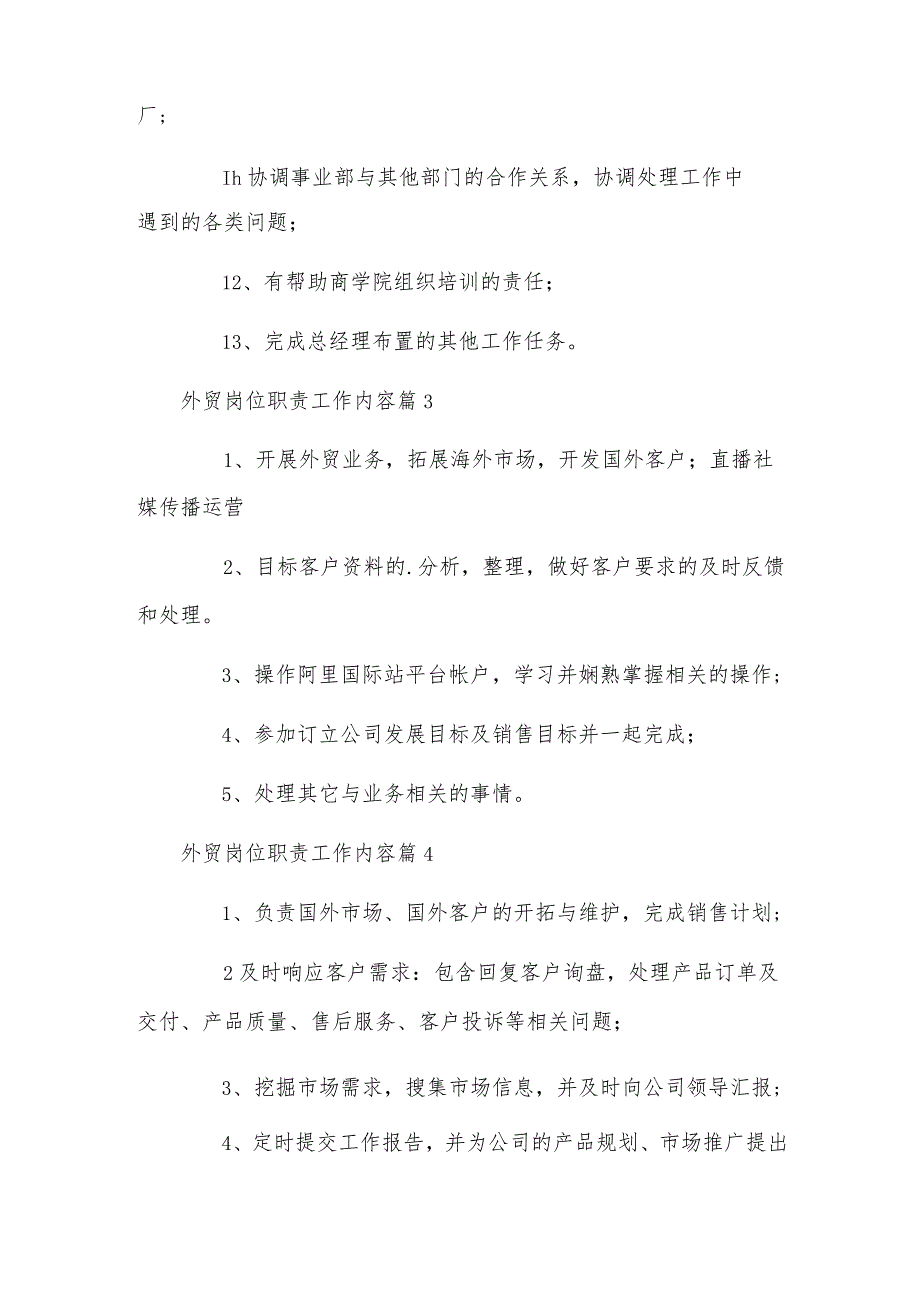 厂;
Ih协调事业部与其他部门的合作关系，协调处理工作中
遇到的各类问题；
12、有帮助商学院组织培训的责任；
13、完成总经理布置的其他工作任务。
外贸岗位职责工作内容篇3
1、开展外贸业务，拓展海外市场，开发国外客户；直播社
媒传播运营
2、目标客户资料的.分析，整理，做好客户要求的及时反馈
和处理。
3、操作阿里国际站平台帐户，学习并娴熟掌握相关的操作;
4、参加订立公司发展目标及销售目标并一起完成；
5、处理其它与业务相关的事情。
外贸岗位职责工作内容篇4
1、负责国外市场、国外客户的开拓与维护，完成销售计划;
2及时响应客户需求：包含回复客户询盘，处理产品订单及
交付、产品质量、售后服务、客户投诉等相关问题；
3、挖掘市场需求，搜集市场信息，并及时向公司领导汇报;
4、定时提交工作报告，并为公司的产品规划、市场推广提出